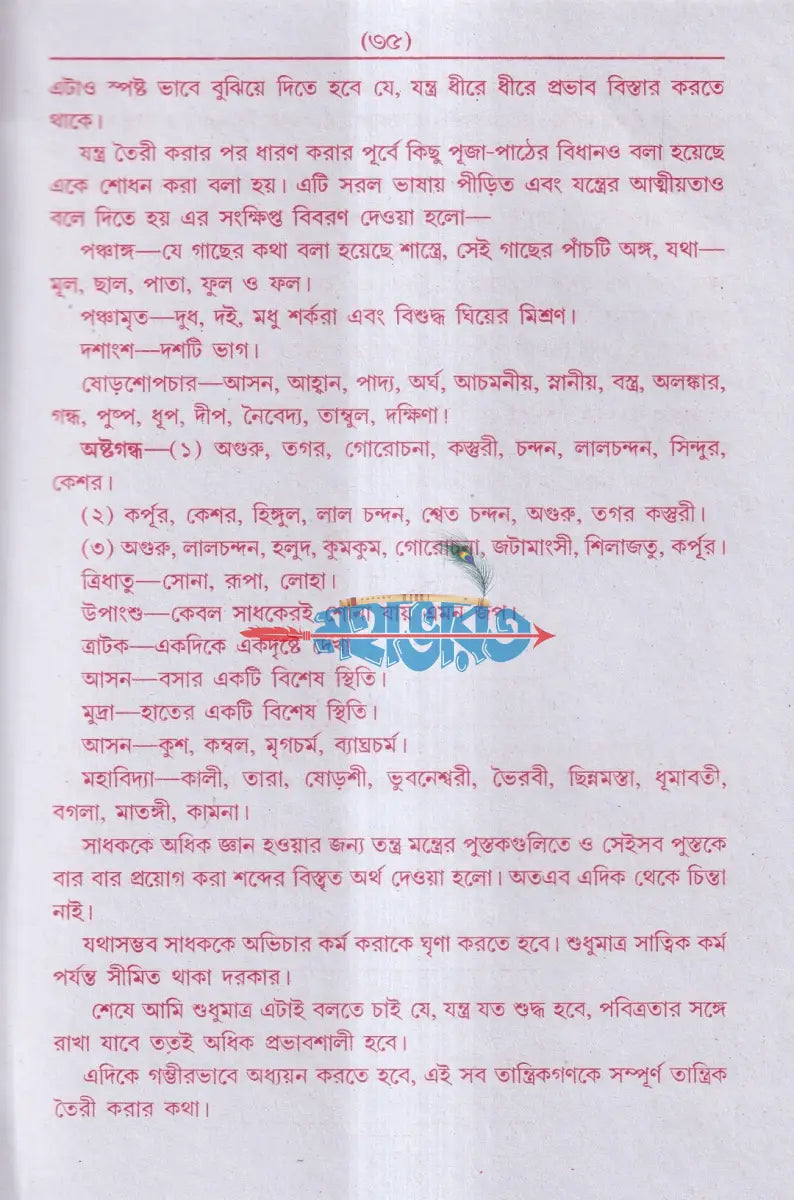 (৩৫)
এটাও স্পষ্ট ভাবে বুঝিয়ে দিতে হবে যে, যন্ত্র ধীরে ধীরে প্রভাব বিস্তার করতে
থাকে।
যন্ত্র তৈরী করার পর ধারণ করার পূর্বে কিছু পূজা-পাঠের বিধানও বলা হয়েছে
একে শোধন করা বলা হয়। এটি সরল ভাষায় পীড়িত এবং যন্ত্রের আত্মীয়তাও
বলে দিতে হয় এর সংক্ষিপ্ত বিবরণ দেওয়া হলো—
পঞ্চাঙ্গ—যে গাছের কথা বলা হয়েছে শাস্ত্রে, সেই গাছের পাঁচটি অঙ্গ, যথা—
মূল, ছাল, পাতা, ফুল ও ফল।
পঞ্চামৃত—দুধ, দই, মধু শর্করা এবং বিশুদ্ধ ঘিয়ের মিশ্রণ।
দশাংশ—দশটি ভাগ।
ষোড়শোপচার—আসন, আহ্বান, পাদ্য, অর্ঘ, আচমনীয়, স্নানীয়, বস্ত্র, অলঙ্কার,
গন্ধ, পুষ্প, ধূপ, দীপ, নৈবেদ্য, তাম্বুল, দক্ষিণা!
অষ্টগন্ধ—(১) অগুরু, তগর, গোরোচনা, কস্তুরী, চন্দন, লালচন্দন, সিন্দুর,
কেশর।
(২) কর্পূর, কেশর, হিঙ্গুল, লাল চন্দন, শ্বেত চন্দন, অগুরু, তগর কস্তুরী।
(৩) অগুরু, লালচন্দন, হলুদ, কুমকুম, গোরোচনা, জটামাংসী, শিলাজতু, কর্পূর।
ত্রিধাতু—সোনা, রূপা, লোহা।
উপাংশু—কেবল সাধকেরই শোনা যায় এমন জপ।
মহাভারত
ত্রাটক—একদিকে একদৃষ্টে দেখা
আসন—বসার একটি বিশেষ স্থিতি।
মুদ্রা—হাতের একটি বিশেষ স্থিতি।
আসন—কুশ, কম্বল, মৃগচর্ম, ব্যাঘ্রচর্ম।
মহাবিদ্যা—কালী, তারা, ষোড়শী, ভুবনেশ্বরী, ভৈরবী, ছিন্নমস্তা, ধূমাবতী,
বগলা, মাতঙ্গী, কামনা।
সাধককে অধিক জ্ঞান হওয়ার জন্য তন্ত্র মন্ত্রের পুস্তকগুলিতে ও সেইসব পুস্তকে
বার বার প্রয়োগ করা শব্দের বিস্তৃত অর্থ দেওয়া হলো। অতএব এদিক থেকে চিন্তা
নাই।
যথাসম্ভব সাধককে অভিচার কর্ম করাকে ঘৃণা করতে হবে। শুধুমাত্র সাত্বিক কর্ম
পর্যন্ত সীমিত থাকা দরকার।
শেষে আমি শুধুমাত্র এটাই বলতে চাই যে, যন্ত্র যত শুদ্ধ হবে, পবিত্রতার সঙ্গে
রাখা যাবে ততই অধিক প্রভাবশালী হবে।
এদিকে গম্ভীরভাবে অধ্যয়ন করতে হবে, এই সব তান্ত্রিকগণকে সম্পূর্ণ তান্ত্রিক
তৈরী করার কথা।